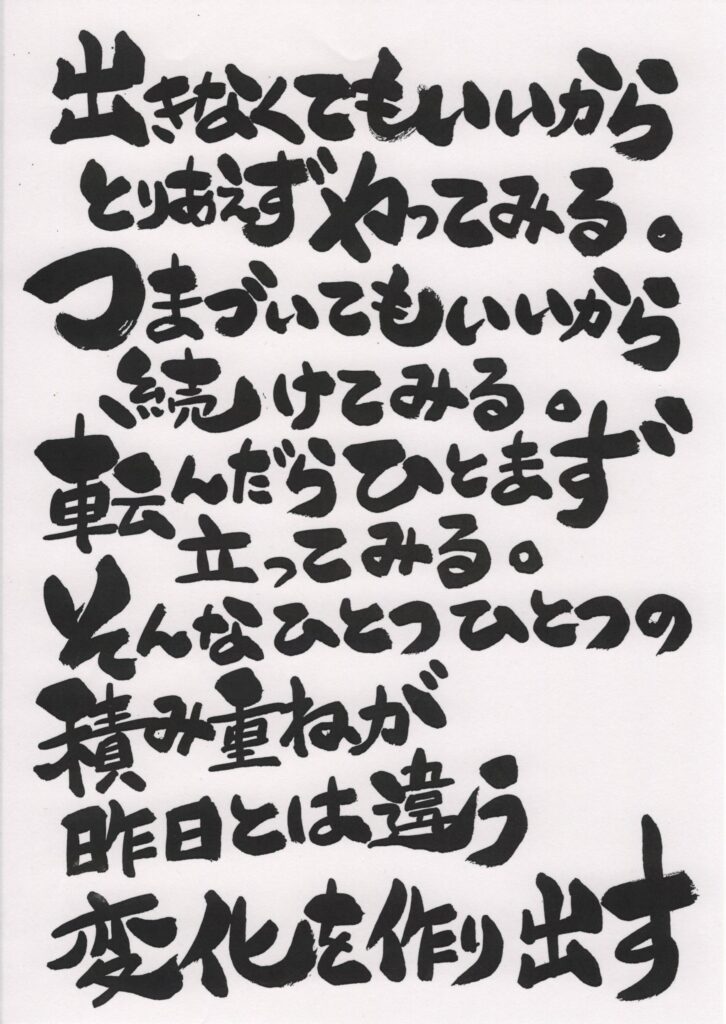 出きなくてもいいから
とりあえずやってみる。
つまづいてもいいから
続けてみる。
転んだらひとまず
立ってみる。
そんなひとつひとつの
積み重ねが
昨日とは違う
変化を作り出す